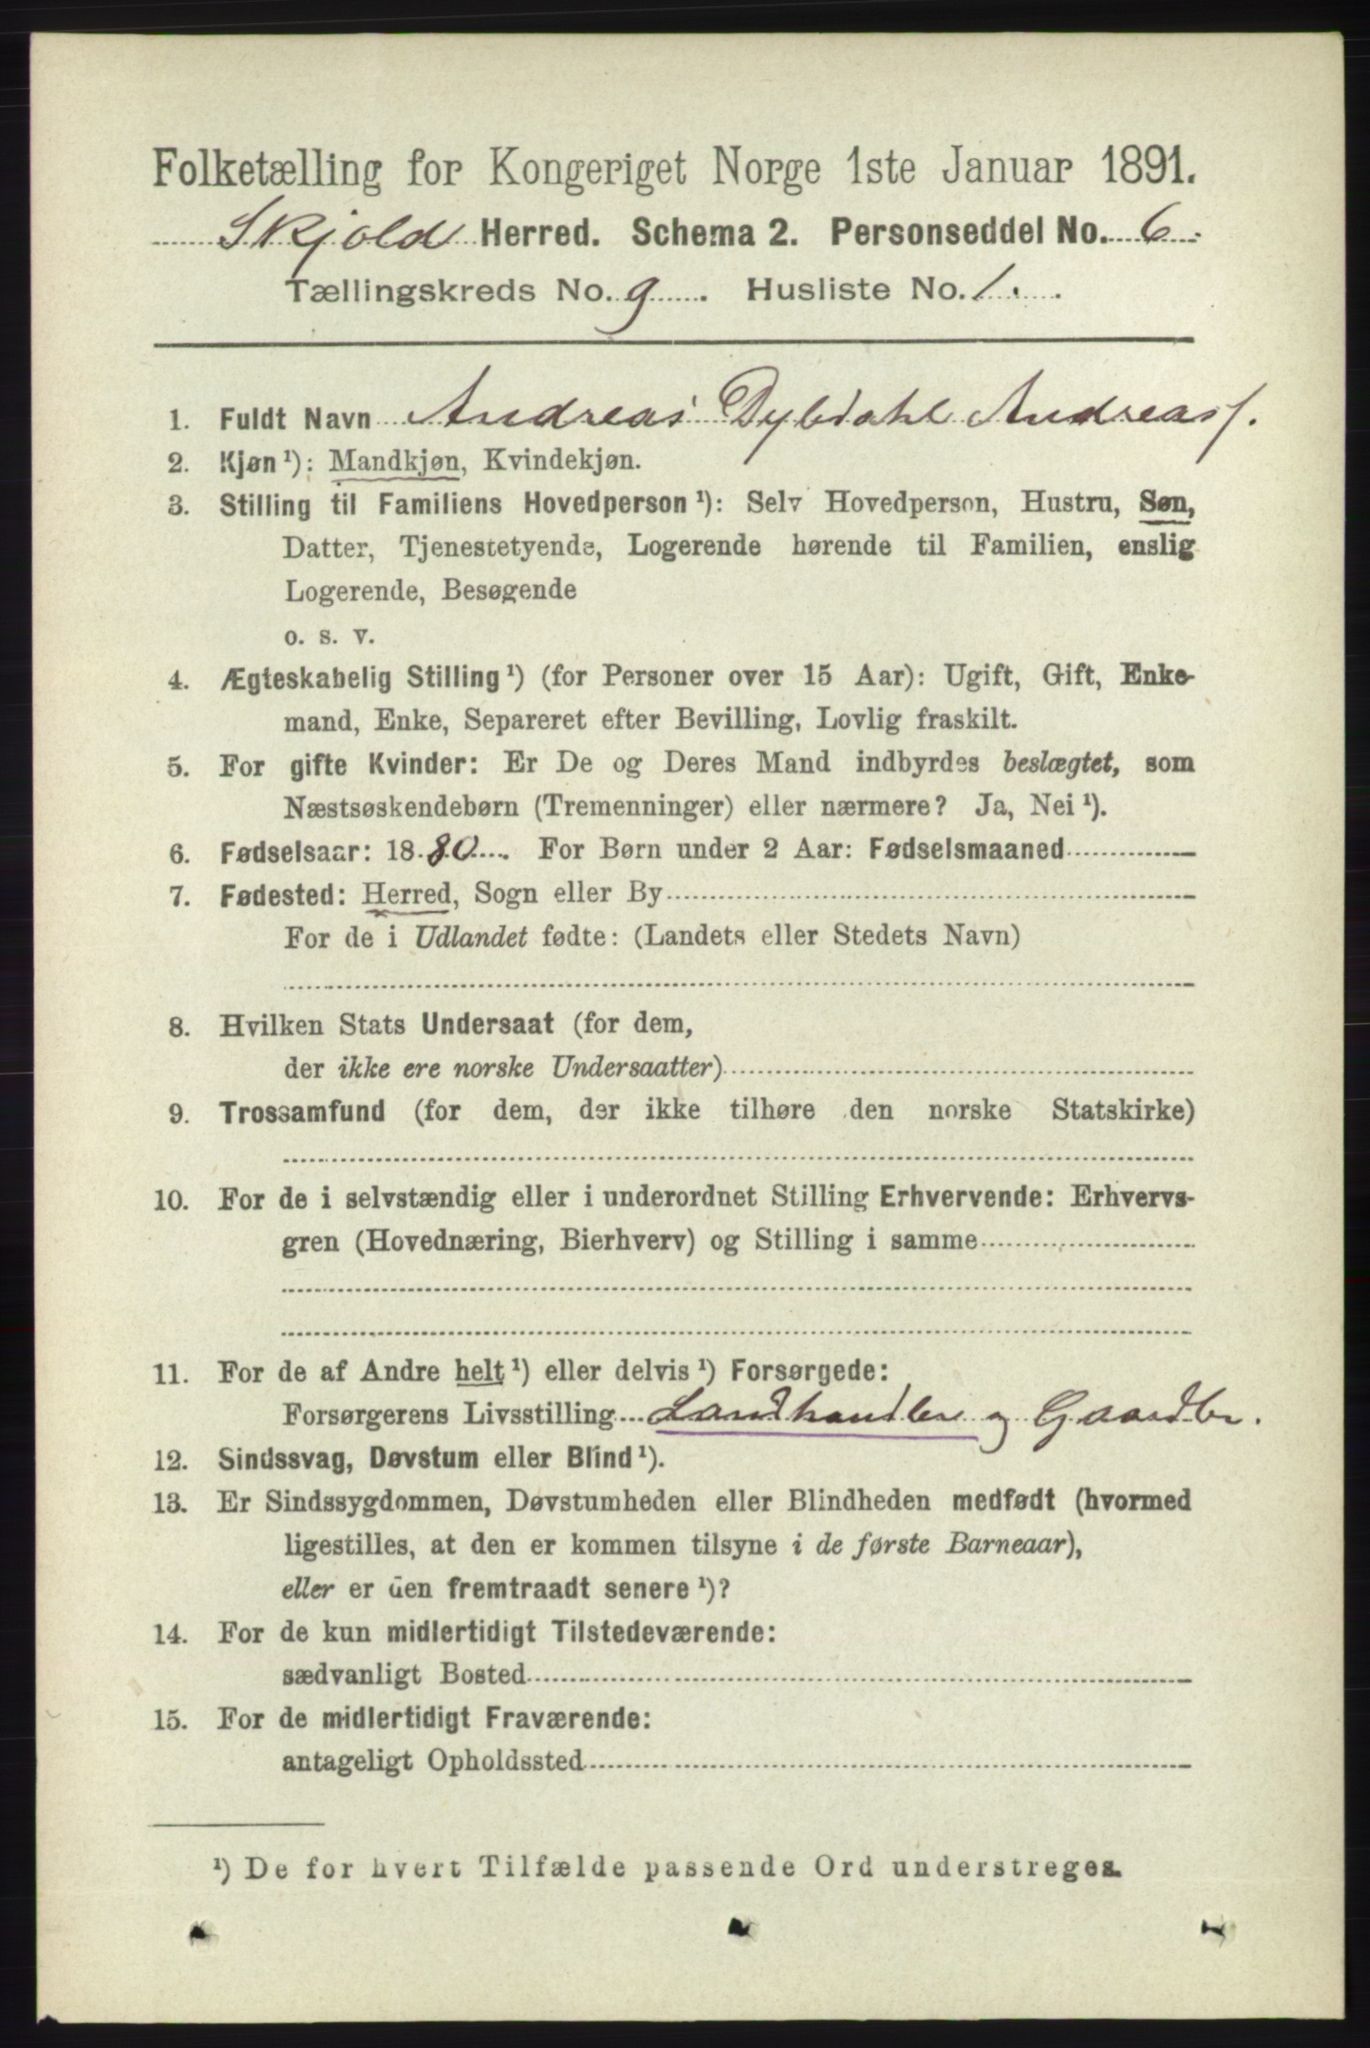 Folketælling for Kongeriget Norge 1ste Januar 1891.
Skjold Herred. Schema 2. Personseddel No. 6.
Tællingskreds No. 9. Husliste No. 1.
1. Fuldt Navn Andreas Dybdahl Andreasf.
2. Kjøn¹): Mandkjøn, Kvindekjøn.
3. Stilling til Familiens Hovedperson¹): Selv Hovedperson, Hustru, Søn,
Datter, Tjenestetyende, Logerende hørende til Familien, enslig
Logerende, Besøgende
o. s. v.
4. Ægteskabelig Stilling¹) (for Personer over 15 Aar): Ugift, Gift, Enke-
mand, Enke, Separeret efter Bevilling, Lovlig fraskilt.
5. For gifte Kvinder: Er De og Deres Mand indbyrdes beslægtet, som
Næstsøskendebørn (Tremenninger) eller nærmere? Ja, Nei¹).
6. Fødselsaar: 1880. For Børn under 2 Aar: Fødselsmaaned
7. Fødested: Herred, Sogn eller By
For de i Udlandet fødte: (Landets eller Stedets Navn)
8. Hvilken Stats Undersaat (for dem,
der ikke ere norske Undersaatter)
9. Trossamfund (for dem, der ikke tilhøre den norske Statskirke)
10. For de i selvstændig eller i underordnet Stilling Erhvervende: Erhvervs-
gren (Hovednæring, Bierhverv) og Stilling i samme
11. For de af Andre helt¹) eller delvis¹) Forsørgede:
Forsørgerens Livsstilling Landhandler og Gaardbr.
12. Sindssvag, Døvstum eller Blind¹).
13. Er Sindssygdommen, Døvstumheden eller Blindheden medfødt (hvormed
ligestilles, at den er kommen tilsyne i de første Barneaar),
eller er den fremtraadt senere¹)?
14. For de kun midlertidigt Tilstedeværende:
sædvanligt Bosted
15. For de midlertidigt Fraværende:
antageligt Opholdssted
¹) De for hvert Tilfælde passende Ord understreges.